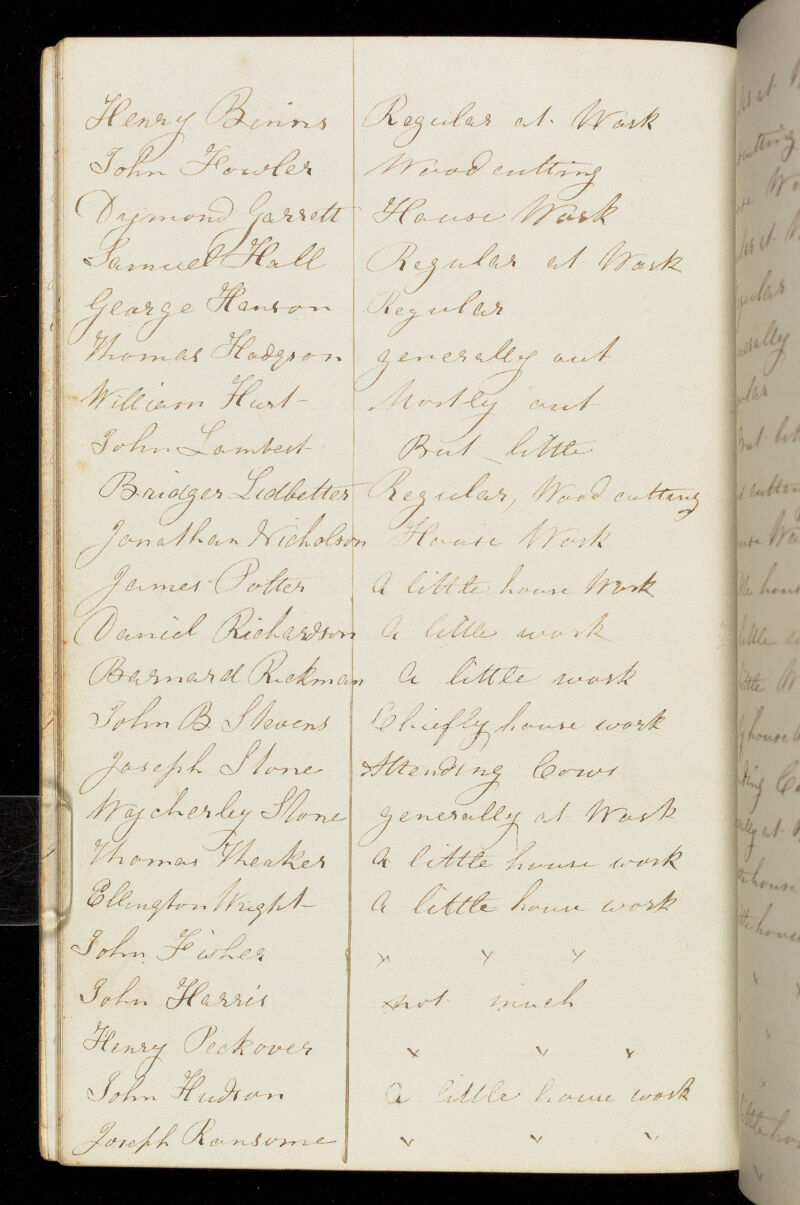 Henry Binns Regular at Work
John Fowler Wood cutting
Dymond Garrett House Work
Samuel Hall Regular at Work
George Hanson Regular
Thomas Hodgson generally out
William Hurt Mostly out
John Lambert But little
Bridger Lidbetter Regular, Wood cutting
Jonathan Nicholson House Work
James Potter A little house Work
Daniel Richardson A little work
Barnard Rickman A little work
John B Stevens Chiefly house work
Joseph Stone Attending Cows
Wycherley Stone generally at Work
Thomas Theaker A little house work
Ellington Wright A little house work
John Fisher " " "
John Harris not much
Henry Peckover " " "
John Hudson A little house work
Joseph Ransome " " "